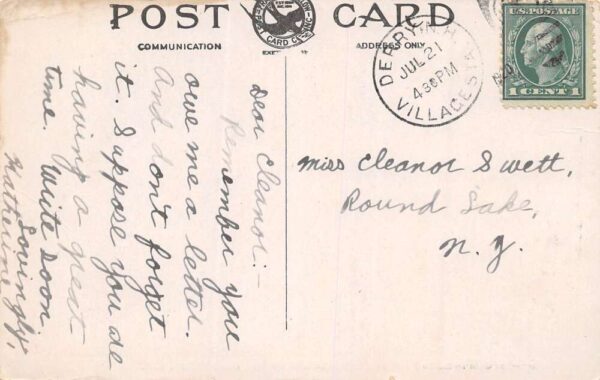 POST CARD
COMMUNICATION
ADDRESS ONLY
DERRY, N.H.
JUL 21
4 30 PM
VILLAGE STA.
U.S. POSTAGE
1 CENT 1
Dear Eleanor:-
Remember you
owe me a letter.
And don't forget
it. Suppose you are
having a great
time. Write soon.
Lovingly,
Katherine.
Miss Eleanor Swett,
Round Lake,
N. Y.